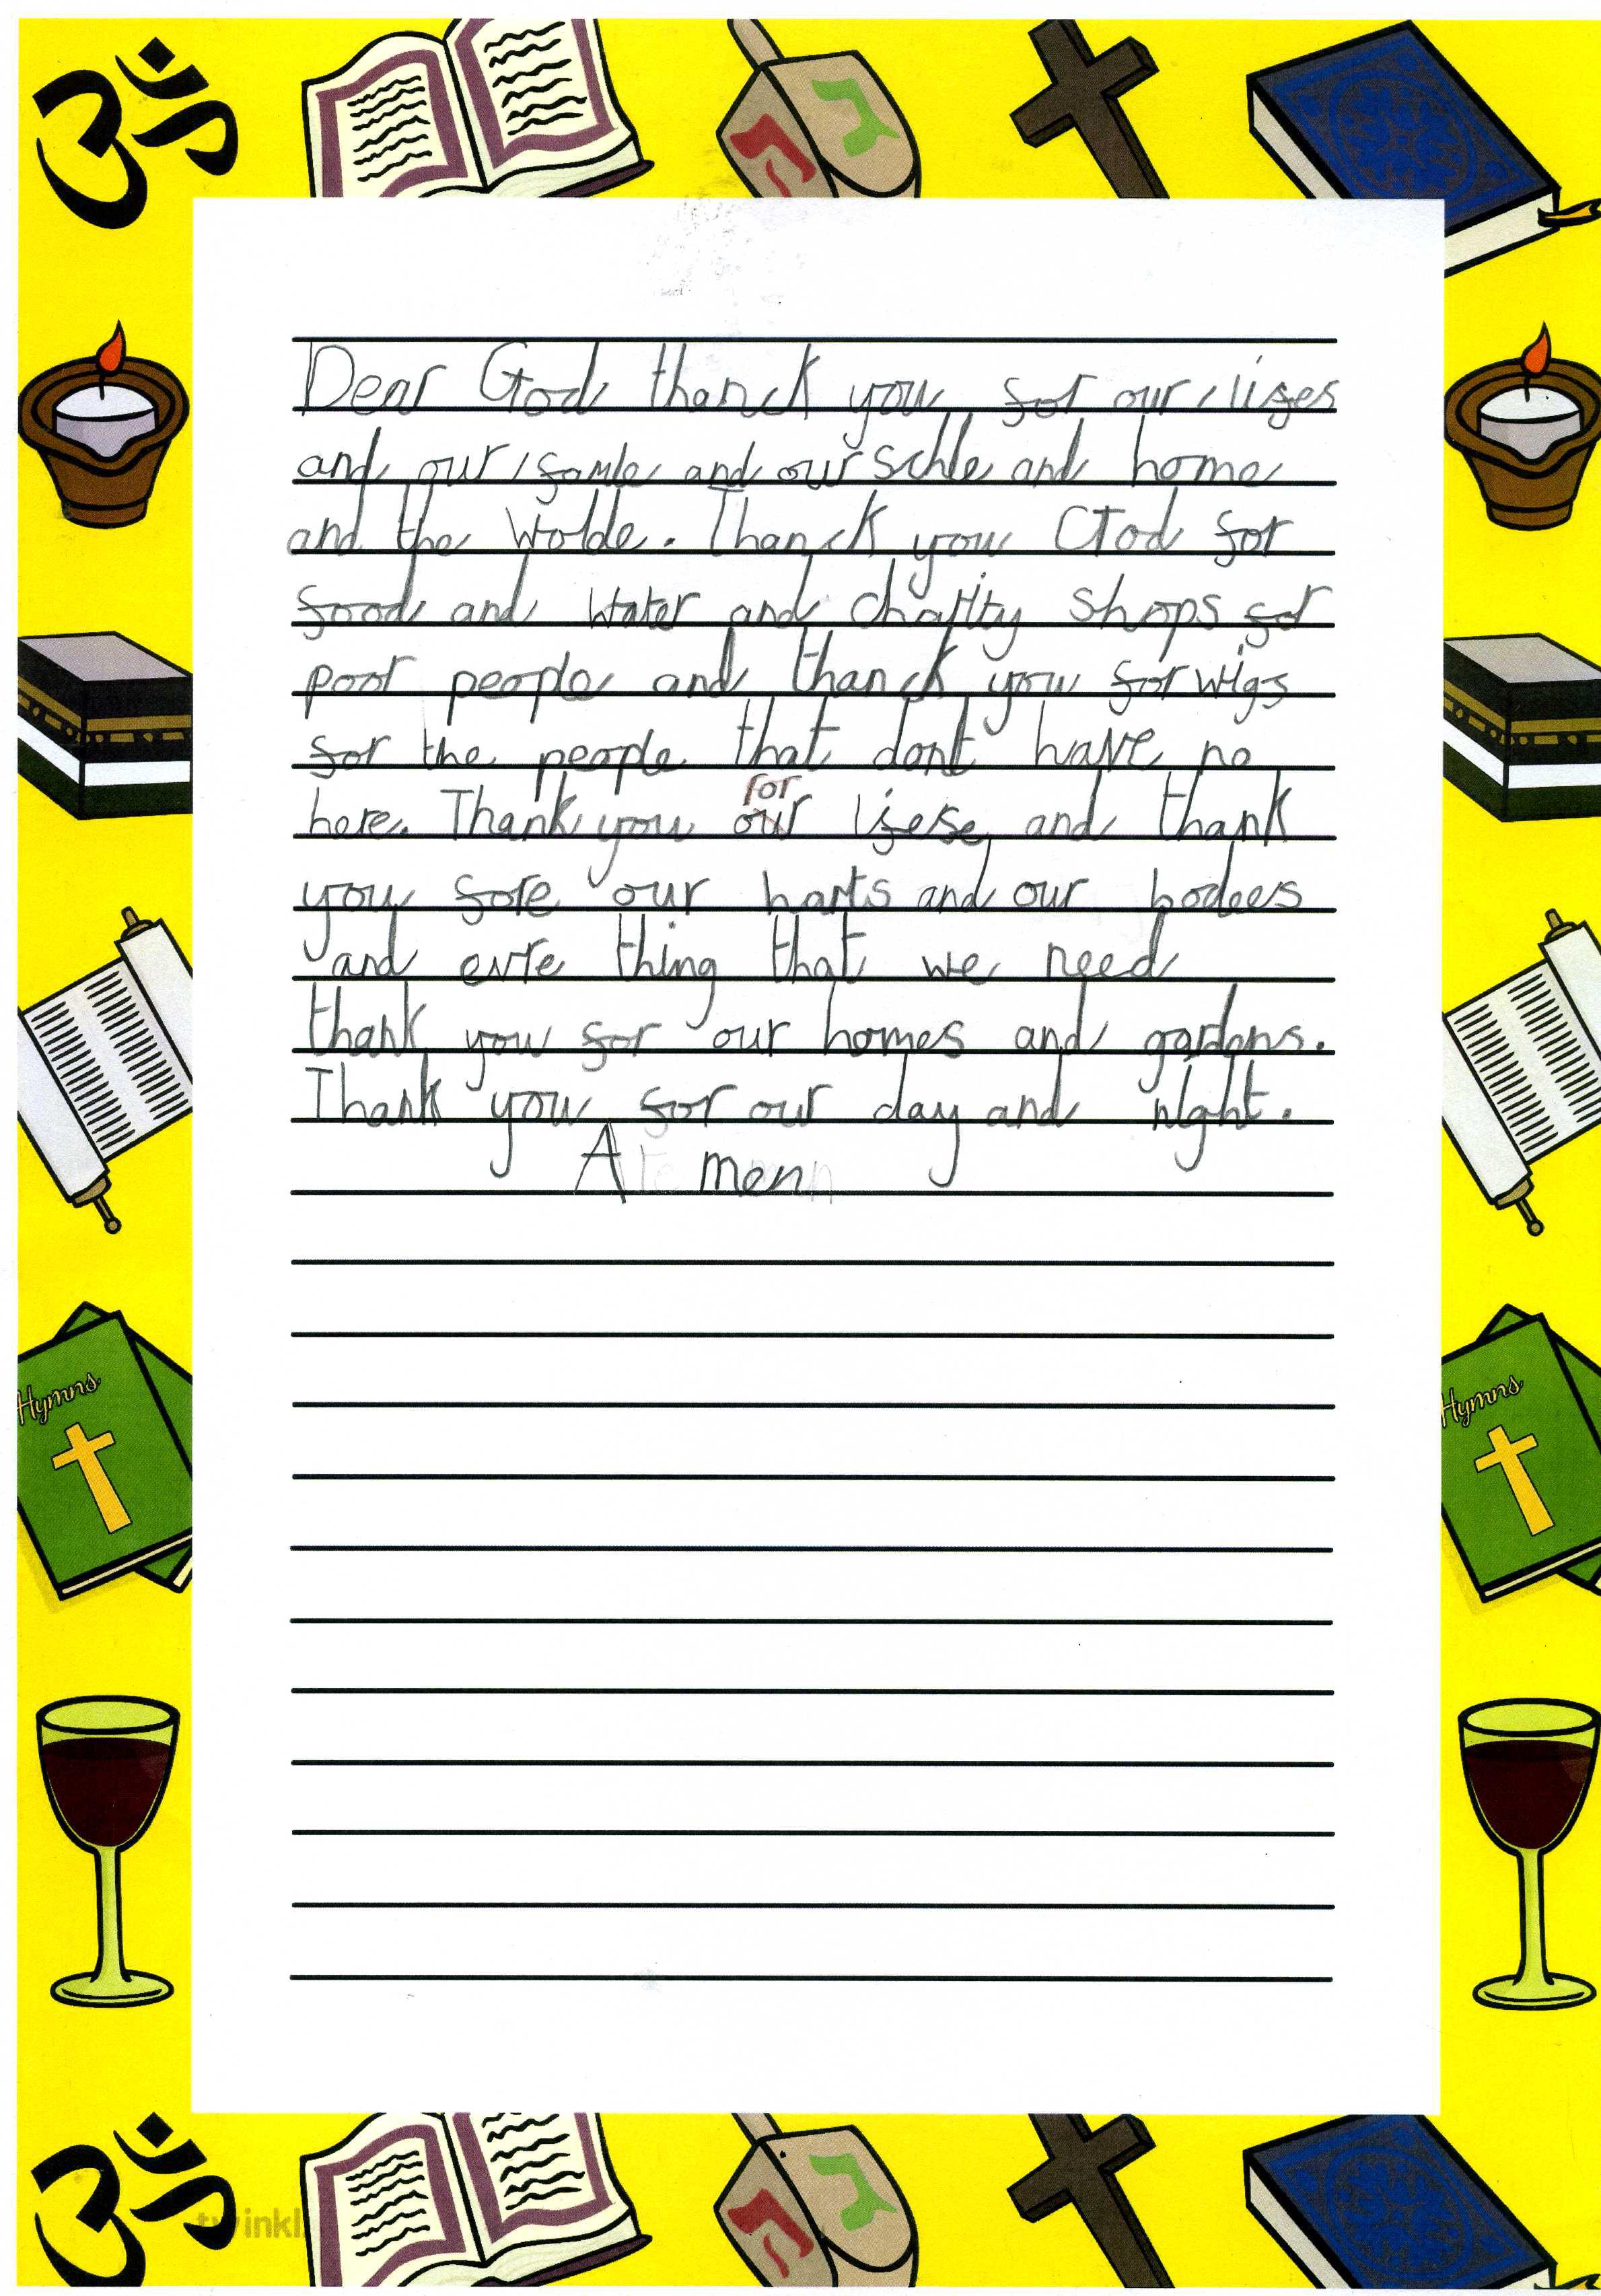 Dear God thanck you for our lifes
and our famle and our schle and home
and the wolde. Thanck you God for
food and water and charity shops for
poor people and thanck you for wigs
for the people that dont have no
for
here. Thank you our lifese and thank
you fore our harts and our bodees
and evre thing that we need
thank you for our homes and gardens.
Thank you for our day and night.
A men
Hymns
Hymns
twinkl